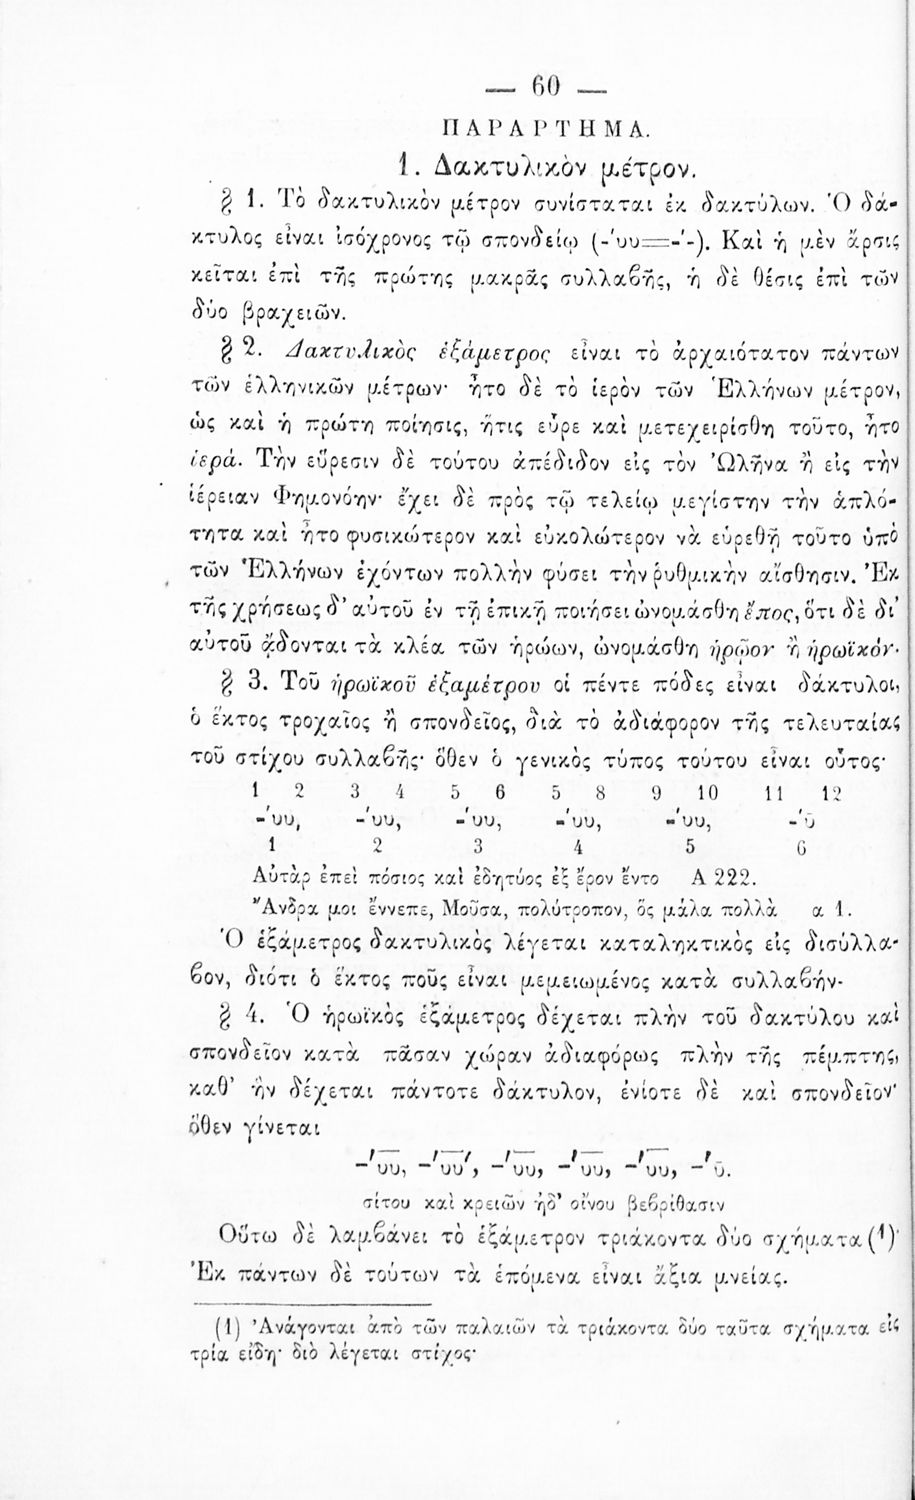 — 60 —
ΠΑΡΑΡΤΗΜΑ.
1. Δακτυλικὸν μέτρον.
§ 1. Τὸ δακτυλικὸν μέτρον συνίσταται ἐκ δακτύλων. Ὁ δά-
κτυλος εἶναι ἰσόχρονος τῷ σπονδείῳ (-́υυ=-́-). Καὶ ἡ μὲν ἄρσις
κεῖται ἐπὶ τῆς πρώτης μακρᾶς συλλαβῆς, ἡ δὲ θέσις ἐπὶ τῶν
δύο βραχειῶν.
§ 2. Δακτυλικὸς ἑξάμετρος εἶναι τὸ ἀρχαιότατον πάντων
τῶν ἑλληνικῶν μέτρων· ἦτο δὲ τὸ ἱερὸν τῶν Ἑλλήνων μέτρον,
ὡς καὶ ἡ πρώτη ποίησις, ἥτις εὗρε καὶ μετεχειρίσθη τοῦτο, ἦτο
ἱερά. Τὴν εὕρεσιν δὲ τούτου ἀπέδιδον εἰς τὸν Ὠλῆνα ἢ εἰς τὴν
ἱέρειαν Φημονόην· ἔχει δὲ πρὸς τῷ τελείῳ μεγίστην τὴν ἁπλό-
τητα καὶ ἦτο φυσικώτερον καὶ εὐκολώτερον νὰ εὑρεθῇ τοῦτο ὑπὸ
τῶν Ἑλλήνων ἐχόντων πολλὴν φύσει τὴν ῥυθμικὴν αἴσθησιν. Ἐκ
τῆς χρήσεως δ' αὐτοῦ ἐν τῇ ἐπικῇ ποιήσει ὠνομάσθη ἔπος, ὅτι δὲ δι'
αὐτοῦ ᾄδονται τὰ κλέα τῶν ἡρώων, ὠνομάσθη ἡρῷον ἢ ἡρωϊκόν·
§ 3. Τοῦ ἡρωϊκοῦ ἑξαμέτρου οἱ πέντε πόδες εἶναι δάκτυλοι,
ὁ ἕκτος τροχαῖος ἢ σπονδεῖος, διὰ τὸ ἀδιάφορον τῆς τελευταίας
τοῦ στίχου συλλαβῆς· ὅθεν ὁ γενικὸς τύπος τούτου εἶναι οὗτος·
1 2 3 4 5 6 5 8 9 10 11 12
-́υυ, -́υυ, -́υυ, -́υυ, -́υυ, -́ῡ
1 2 3 4 5 6
Αὐτὰρ ἐπεὶ πόσιος καὶ ἐδητύος ἐξ ἔρον ἕντο Α 222.
Ἄνδρα μοι ἔννεπε, Μοῦσα, πολύτροπον, ὃς μάλα πολλὰ α 1.
Ὁ ἑξάμετρος δακτυλικὸς λέγεται καταληκτικὸς εἰς δισύλλα-
βον, διότι ὁ ἕκτος ποῦς εἶναι μεμειωμένος κατὰ συλλαβήν·
§ 4. Ὁ ἡρωϊκὸς ἑξάμετρος δέχεται πλὴν τοῦ δακτύλου καὶ
σπονδεῖον κατὰ πᾶσαν χώραν ἀδιαφόρως πλὴν τῆς πέμπτης,
καθ' ἣν δέχεται πάντοτε δάκτυλον, ἐνίοτε δὲ καὶ σπονδεῖον·
ὅθεν γίνεται
-́υ̅υ̅, -́υ̅υ̅', -́υ̅υ̅, -́υ̅υ̅, -́υ̅υ̅, -́ῡ.
σίτου καὶ κρειῶν ἠδ' οἴνου βεβρίθασιν
Οὕτω δὲ λαμβάνει τὸ ἑξάμετρον τριάκοντα δύο σχήματα (1)·
Ἐκ πάντων δὲ τούτων τὰ ἑπόμενα εἶναι ἄξια μνείας.
(1) Ἀνάγονται ἀπὸ τῶν παλαιῶν τὰ τριάκοντα δύο ταῦτα σχήματα εἰς
τρία εἴδη· διὸ λέγεται στίχος·